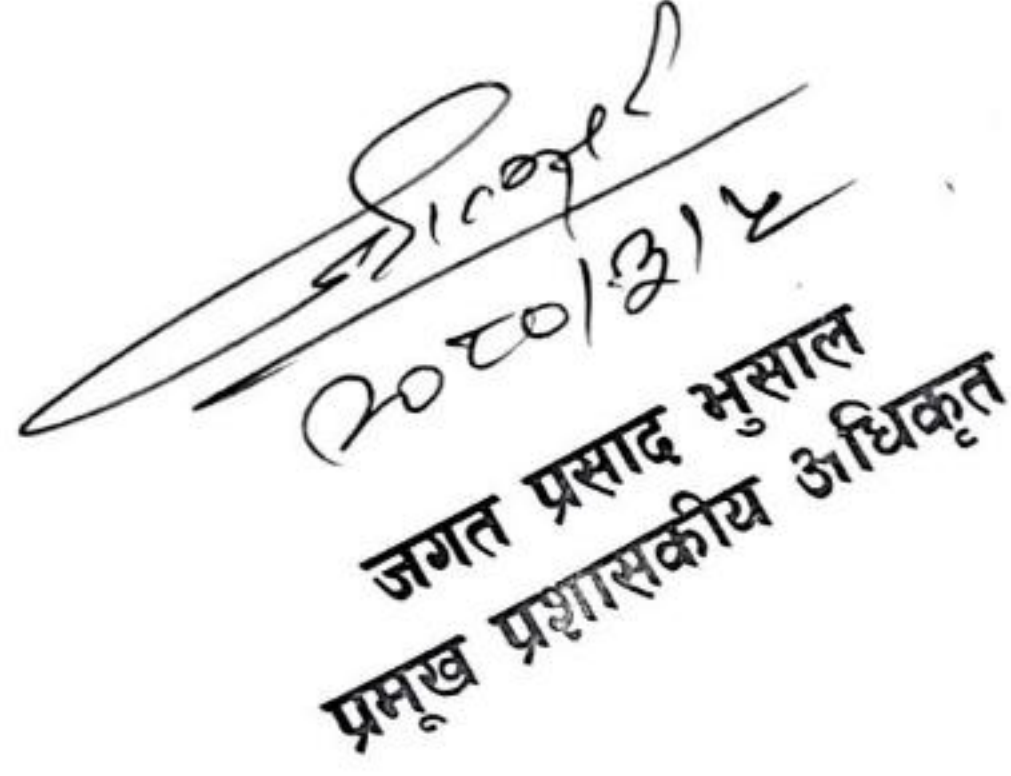 २०८०।३।५
जगत प्रसाद भुसाल
प्रमुख प्रशासकीय अधिकृत